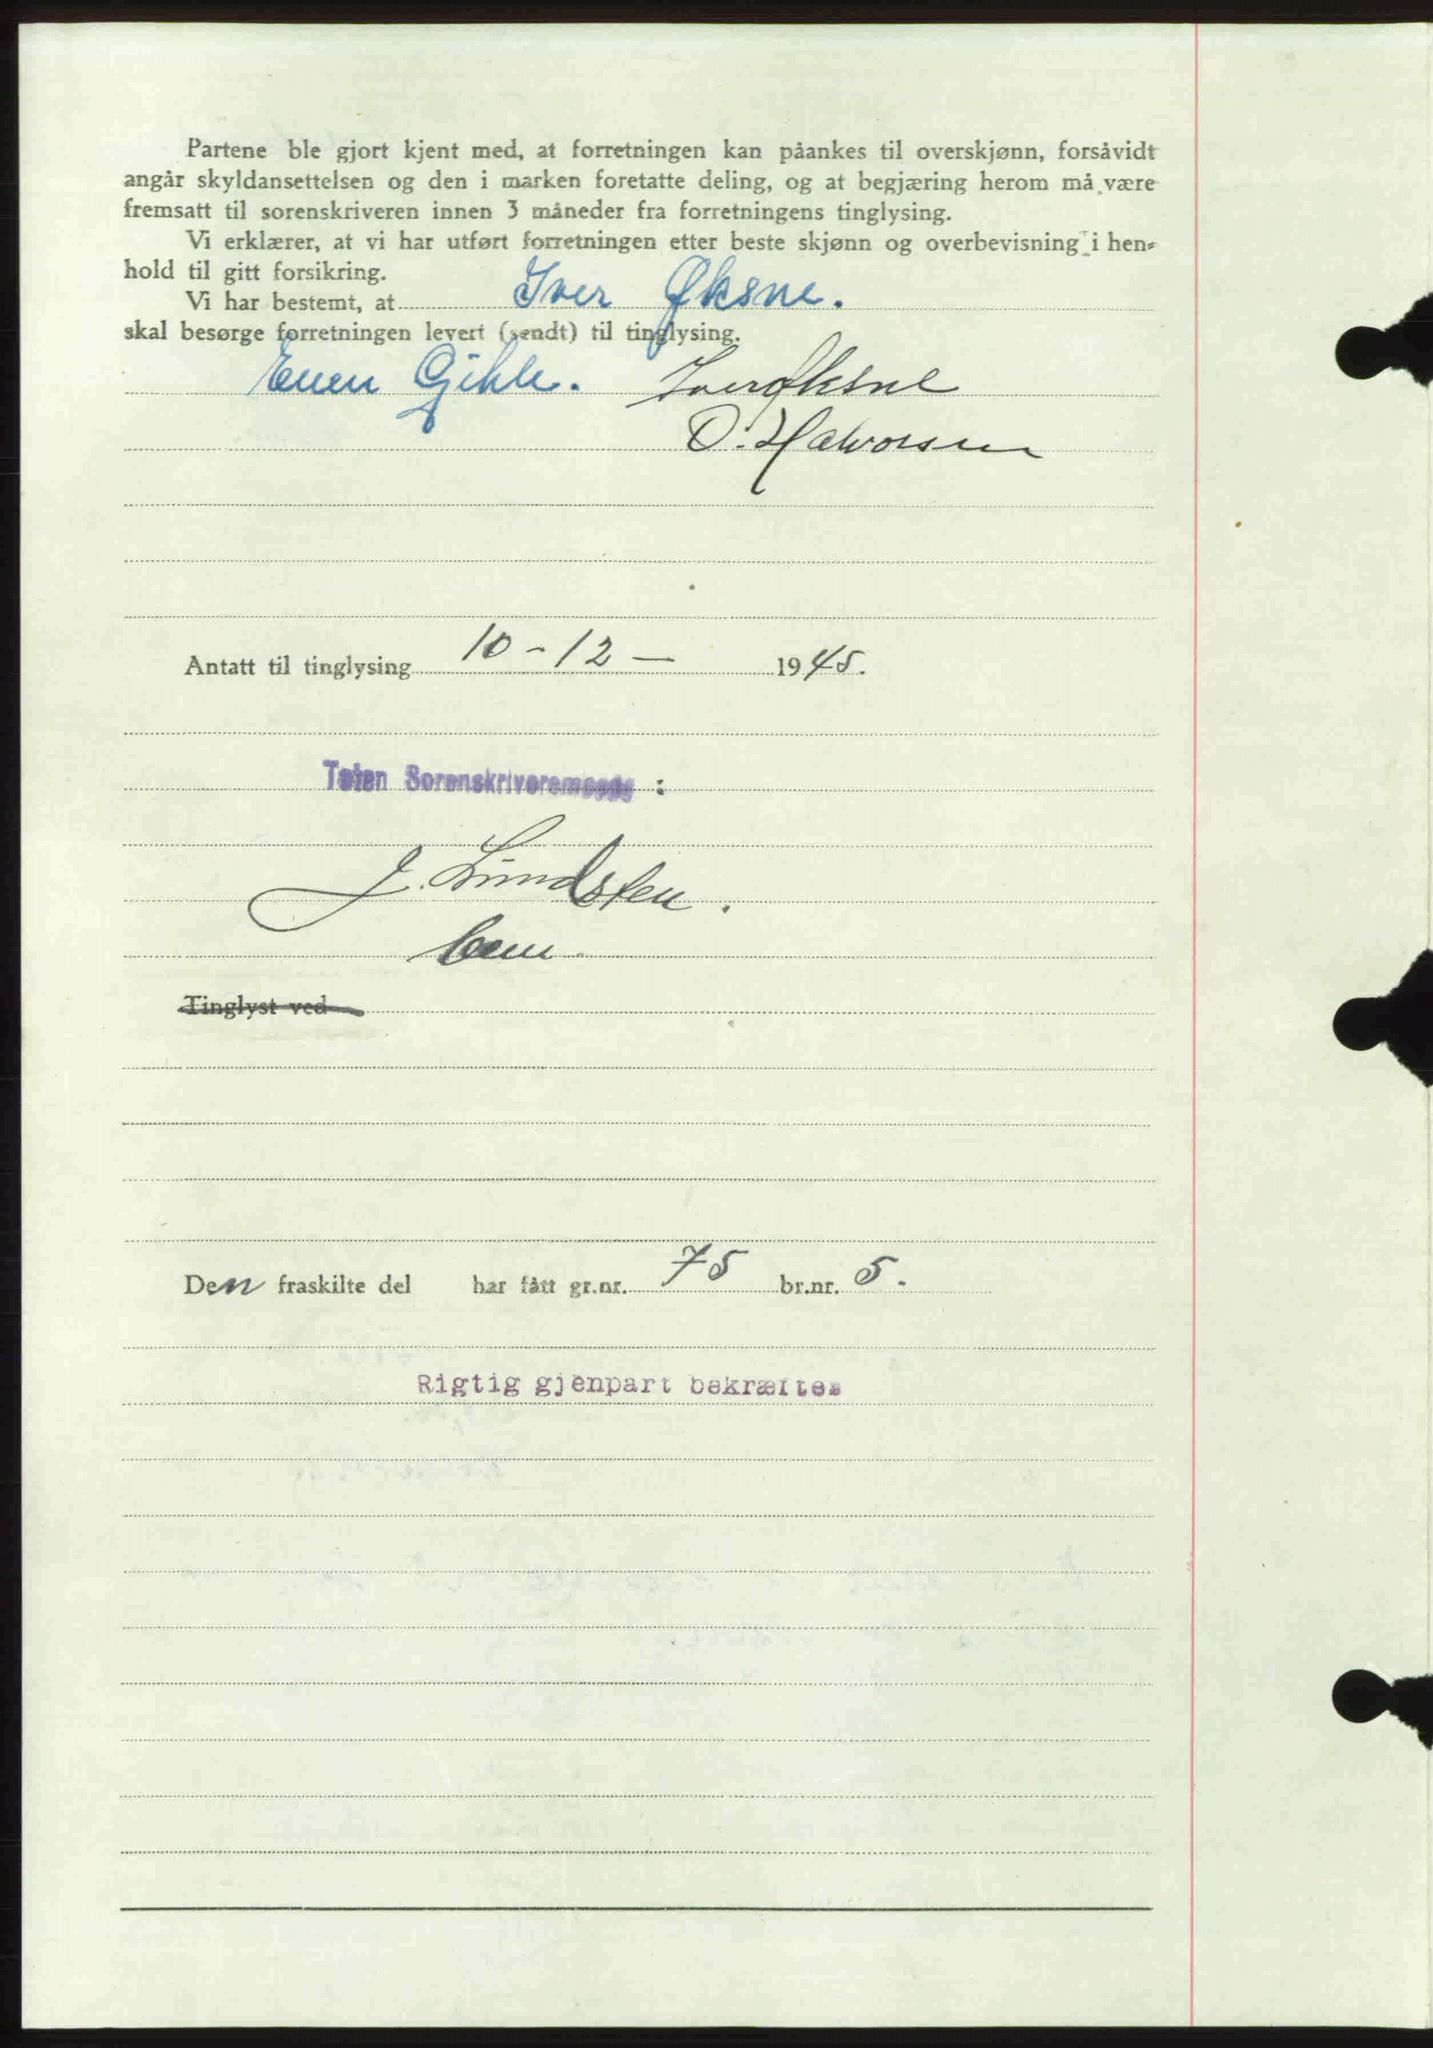 Partene ble gjort kjent med, at forretningen kan påankes til overskjønn, forsåvidt
angår skyldansettelsen og den i marken foretatte deling, og at begjæring herom må være
fremsatt til sorenskriveren innen 3 måneder fra forretningens tinglysing.
Vi erklærer, at vi har utført forretningen etter beste skjønn og overbevisning i hen-
hold til gitt forsikring.
Vi har bestemt, at Iver Øksne.
skal besørge forretningen levert (sendt) til tinglysing.
Even Gihle. Iver Øksne
O. Halvorsen
Antatt til tinglysing 10-12- 1945.
Toten Sorenskriverembede :
J. Lundsten.
Tinglyst ved
Den fraskilte del har fått gr.nr. 75 br.nr. 5.
Rigtig gjenpart bekræftes